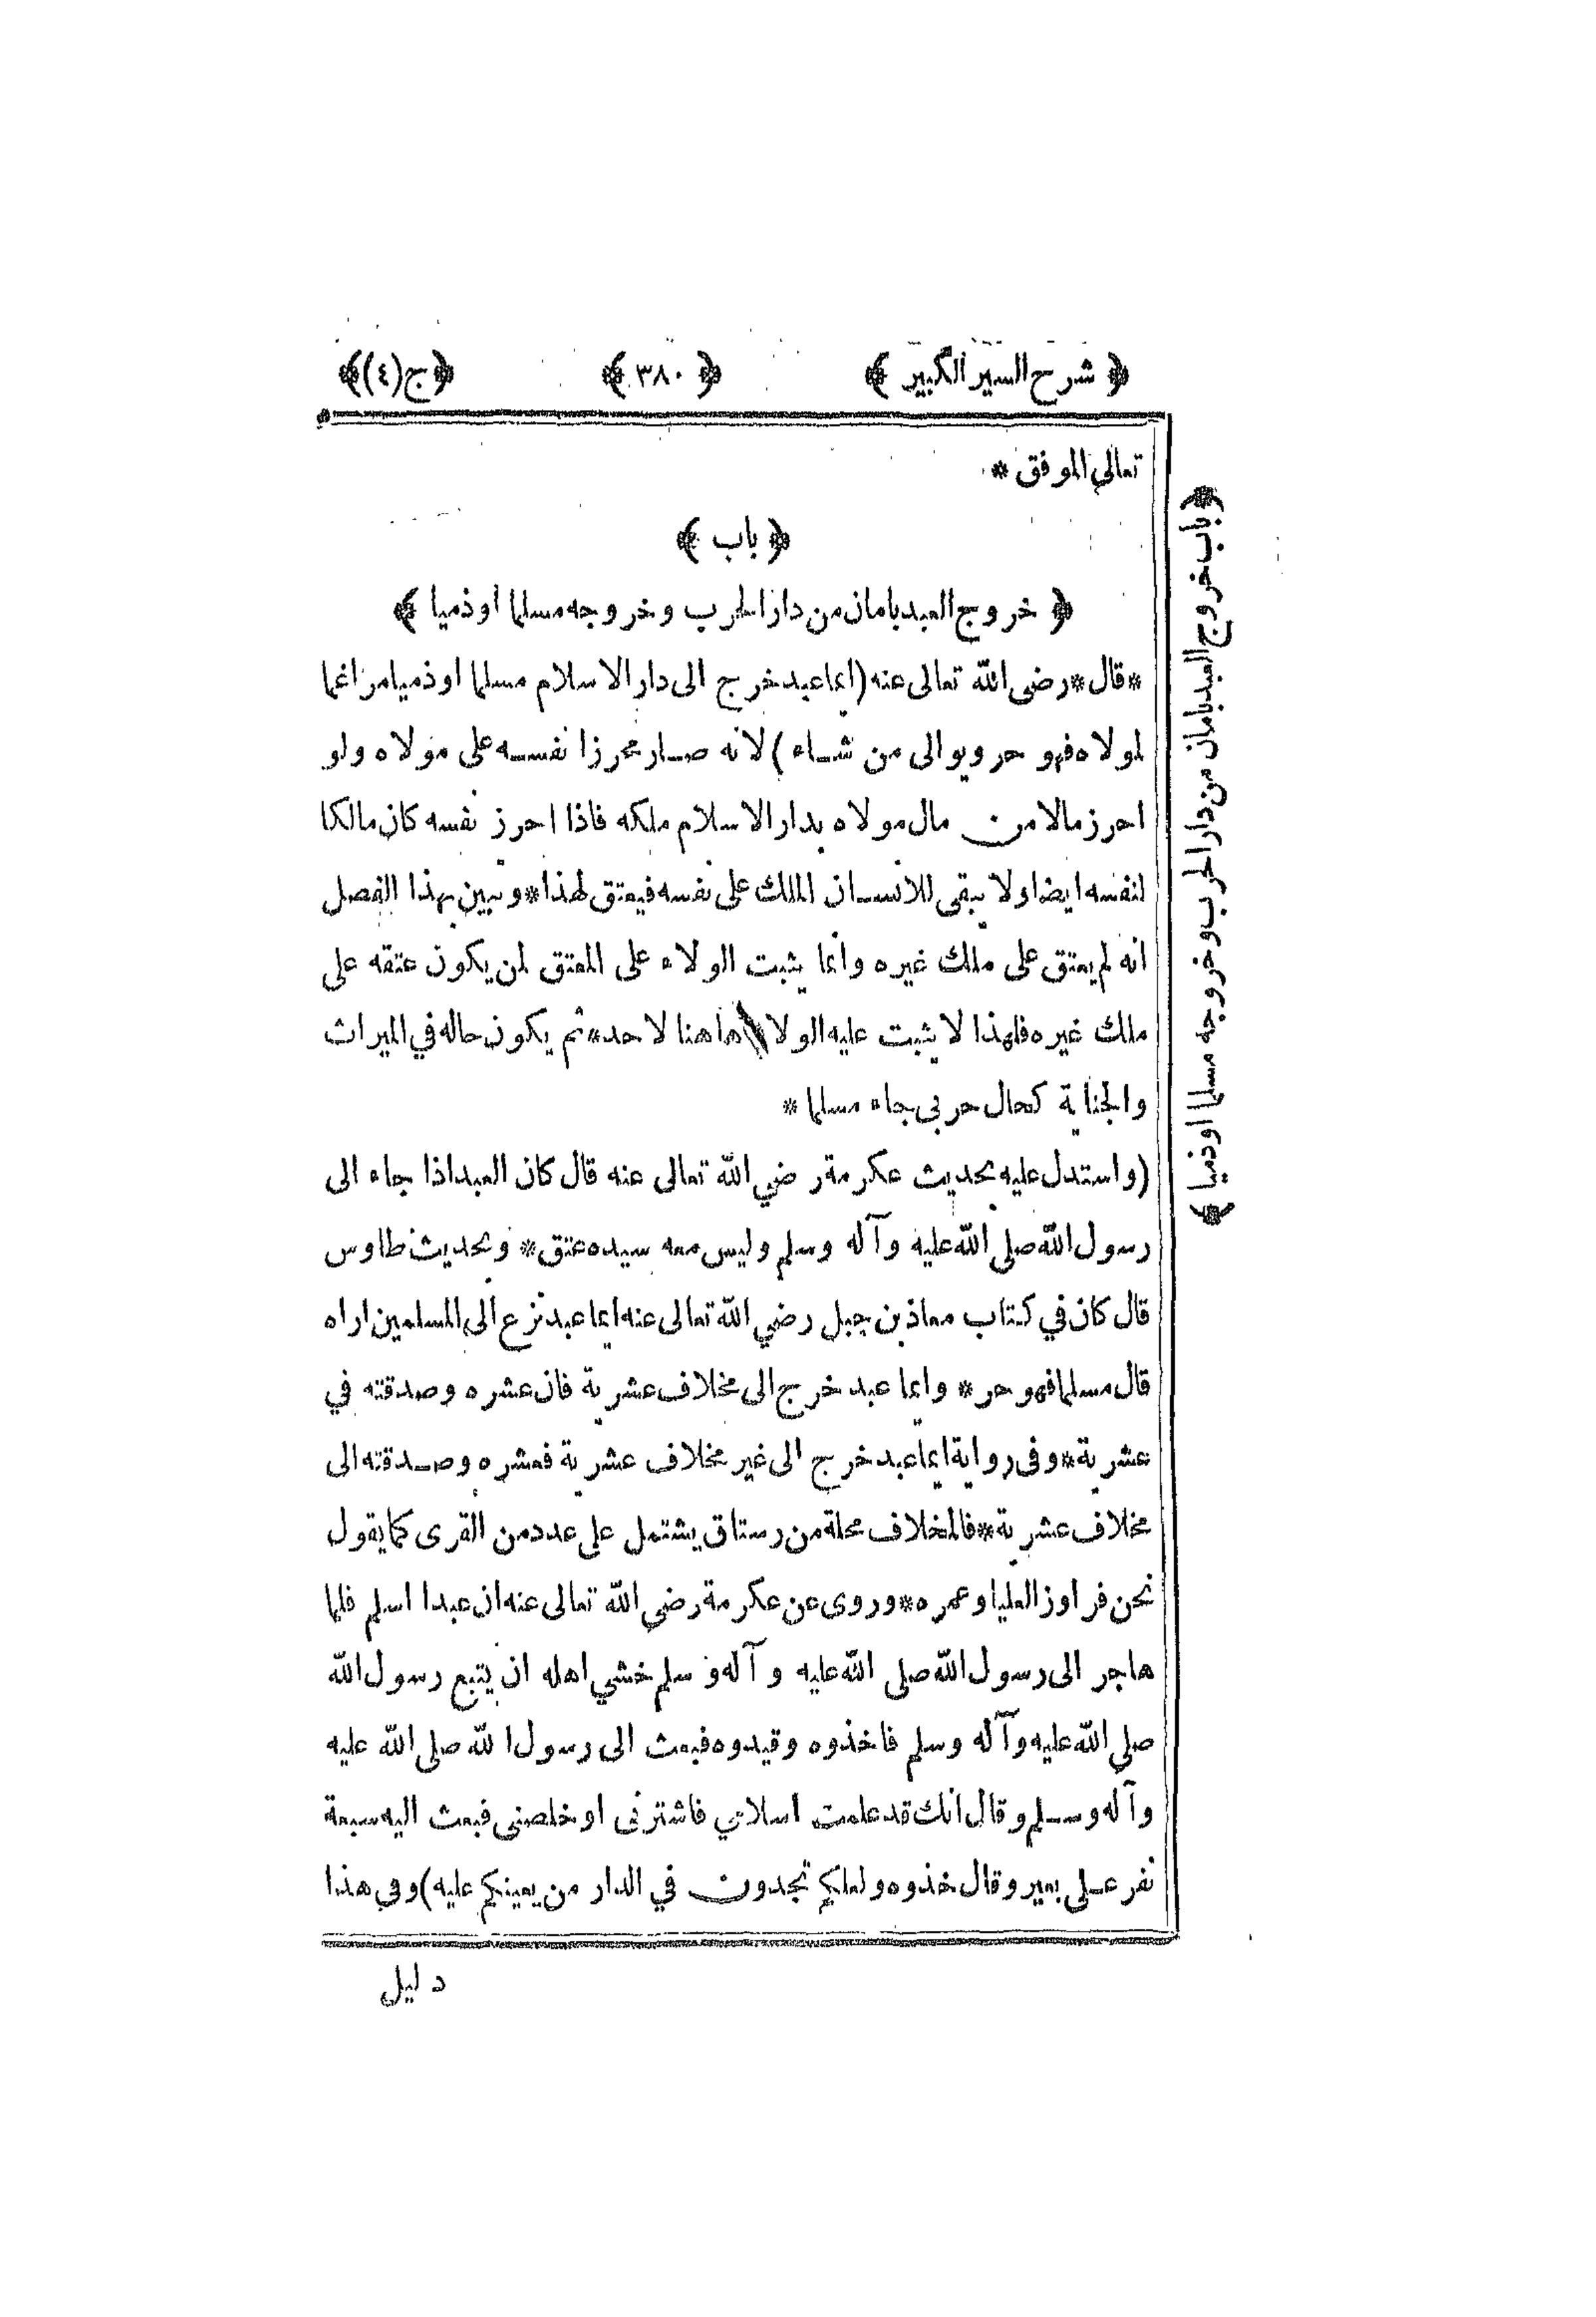 ﴿ شرح السير الكبير ﴾ ﴿ ٣٨٠ ﴾ ﴿ ج (٤) ﴾
تعالى الموفق *
﴿ باب ﴾
﴿ خروج العبد بامان من دار الحرب وخروجه مسلما اوذميا ﴾
*قال* رضى الله تعالى عنه (ايما عبد خرج الى دار الاسلام مسلما اوذميا مراغما
لمولاه فهو حر ويوالى من شاء) لانه صار محرزا نفسه على مولاه ولو
احرز مالا من مال مولاه بدار الاسلام ملكه فاذا احرز نفسه كان مالكا
لنفسه ايضا ولا يبقى للانسان الملك على نفسه فيعتق لهذا* وتبين بهذا الفصل
انه لم يعتق على ملك غيره وانما يثبت الولاء على المعتق لمن يكون عتقه على
ملك غيره فلهذا لا يثبت عليه الولاء هاهنا لاحد* ثم يكون حاله في الميراث
والجناية كحال حربى جاء مسلما *
(واستدل عليه بحديث عكرمة رضي الله تعالى عنه قال كان العبد اذا جاء الى
رسول الله صلى الله عليه وآله وسلم وليس معه سيده عتق* وبحديث طاوس
قال كان في كتاب معاذ بن جبل رضي الله تعالى عنه ايما عبد نزع الى المسلمين اراه
قال مسلما فهو حر * وايما عبد خرج الى مخلاف عشرية فان عشره وصدقته في
عشرية* وفى رواية ايما عبد خرج الى غير مخلاف عشرية فعشره وصدقته الى
مخلاف عشرية* فالمخلاف محلة من رستاق يشتمل على عدد من القرى كما يقول
نحن فراوز العليا وعمره* وروى عن عكرمة رضي الله تعالى عنه ان عبدا اسلم فلما
هاجر الى رسول الله صلى الله عليه وآله وسلم خشي اهله ان يتبع رسول الله
صلى الله عليه وآله وسلم فاخذوه وقيدوه فبعث الى رسول الله صلى الله عليه
وآله وسلم وقال انك قد علمت اسلامي فاشترنى او خلصنى فبعث اليه سبعة
نفر على بعير وقال خذوه ولعلكم تجدون في الدار من يعينكم عليه) وفي هذا
دليل
﴿ باب خروج العبد بامان من دار الحرب وخروجه مسلما اوذميا ﴾